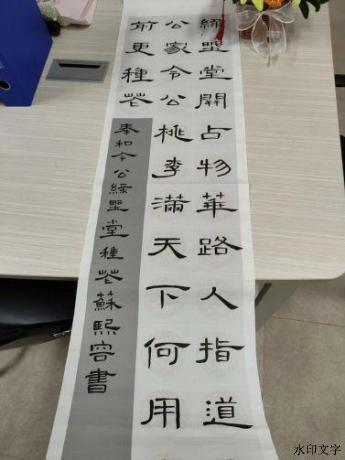 緑野堂開占物華路人指道
公家令公桃李滿天下何用
前更種花
奉和令公緑野堂種花蘇熙容書
水印文字